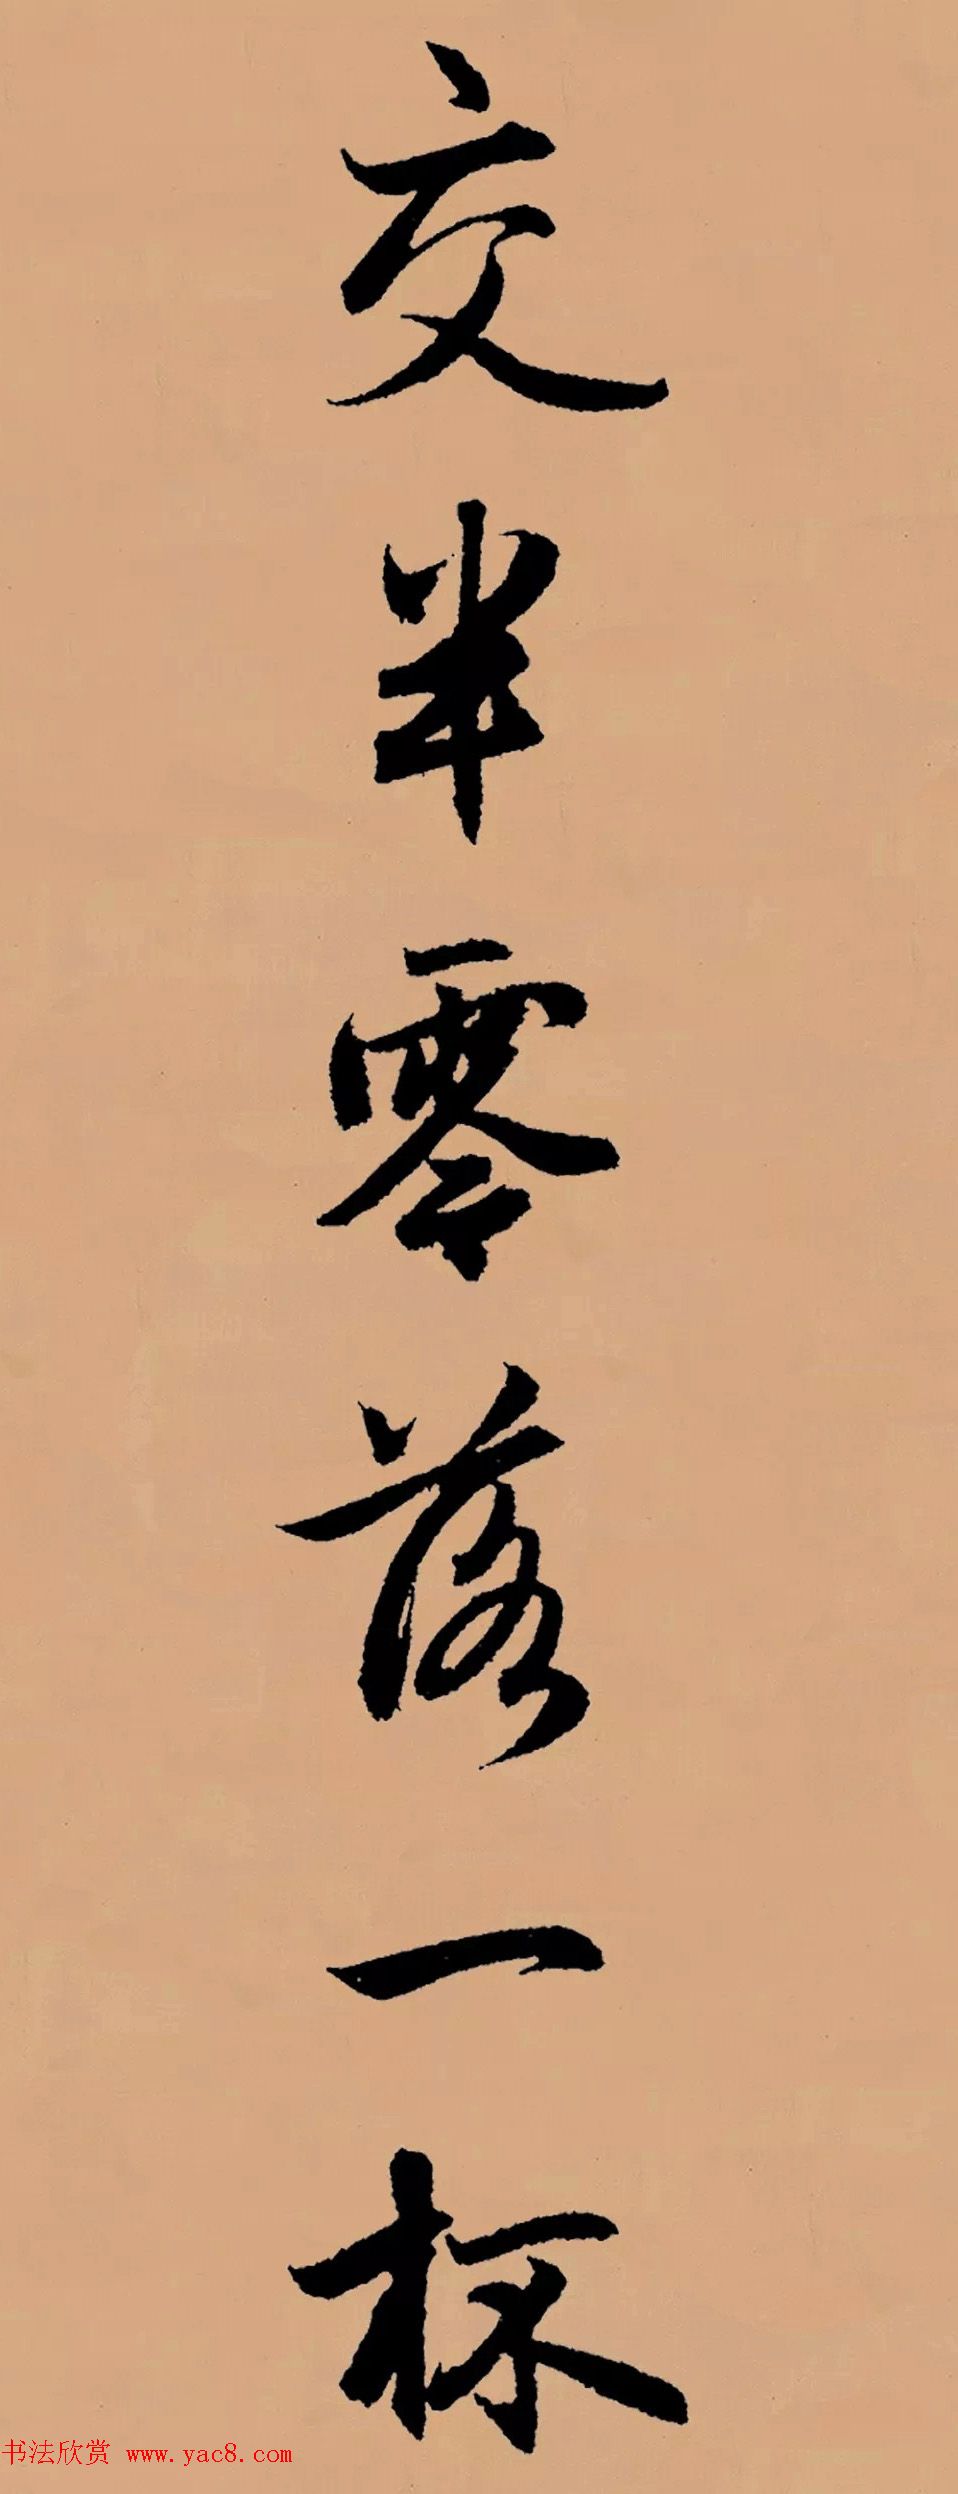 交半零落一杯
书法欣赏 www.yac8.com